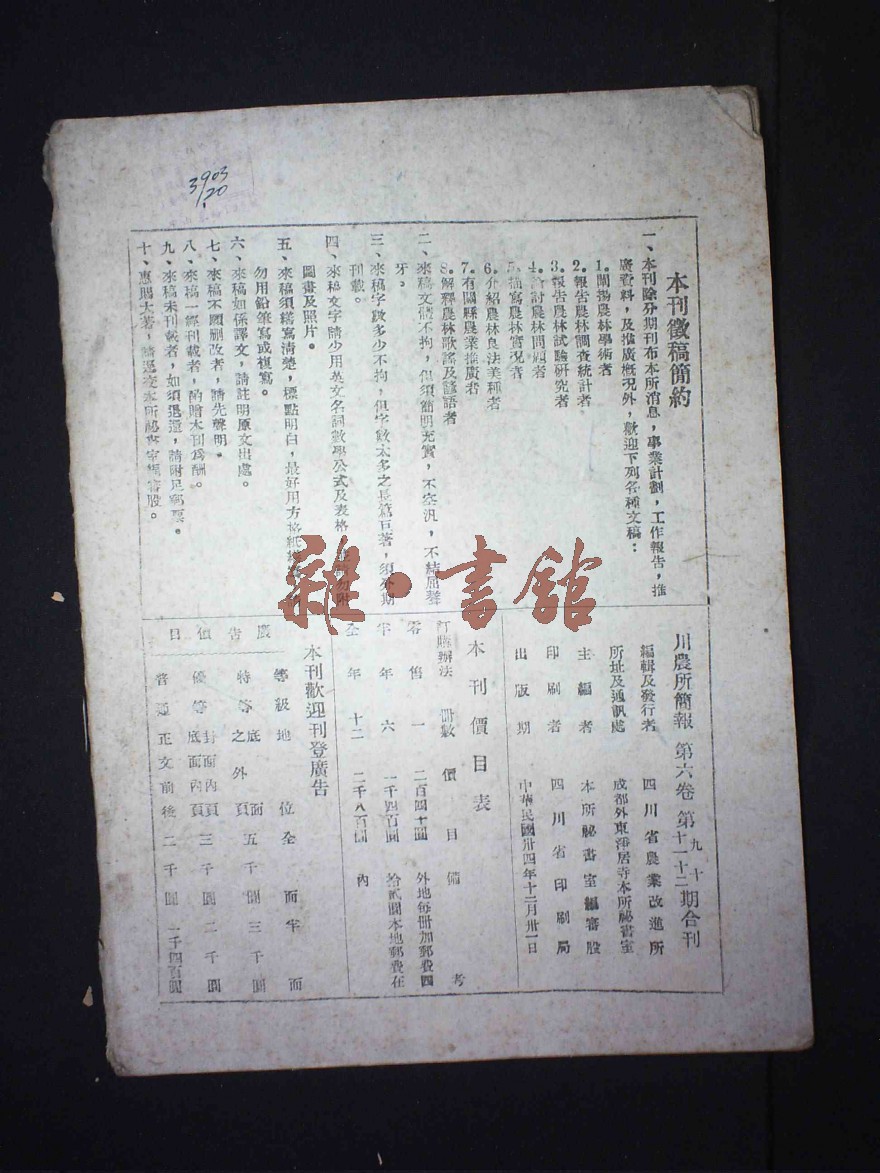 3903
120
本刊徵稿簡約
一、本刊除分期刊布本所消息，事業計劃，工作報告，推
廣資料，及推廣概況外，歡迎下列各種文稿：
1.闡揚農林學術者
2.報告農林調查統計者
3.報告農林試驗研究者
4.討論農林問題者
5.描寫農林實況者
6.介紹農林良法美種者
7.有關縣農業推廣者
8.解釋農林歌謠及諺語者
二、來稿文體不拘，但須簡明充實，不空汎，不結屈聱
牙。
三、來稿字數多少不拘，但字數太多之長篇巨著，須分期
刊載。
四、來稿文字請少用英文名詞數學公式及表格
圖畫及照片。
五、來稿須繕寫清楚，標點明白，最好用方格紙
勿用鉛筆寫或複寫。
六、來稿如係譯文，請註明原文出處。
七、來稿不願刪改者，請先聲明。
八、來稿一經刊載者，酌贈本刊爲酬。
九、來稿未刊載者，如須退還，請附足郵票。
十、惠賜大著，請逕交本所祕書室編審股。
川農所簡報 第六卷 第九十十一十二期合刊
編輯及發行者 四川省農業改進所
所址及通訊處 成都外東淨居寺本所祕書室
主編者 本所祕書室編審股
印刷者 四川省印刷局
出版期 中華民國卅四年十二月卅一日
本刊價目表
訂購辦法 冊數 價目 備考
零售 一 二百四十圓 外地每冊加郵費四
半年 六 一千四百圓 拾貳圓本地郵費在
全年 十二 二千八百圓 內
本刊歡迎刊登廣告
廣告價目
等級 地位 全面 半面
特等 底面之外頁 五千圓 三千圓
優等 封面內頁底面內頁 三千圓 二千圓
普通 正文前後 二千圓 一千四百圓
雜·書館